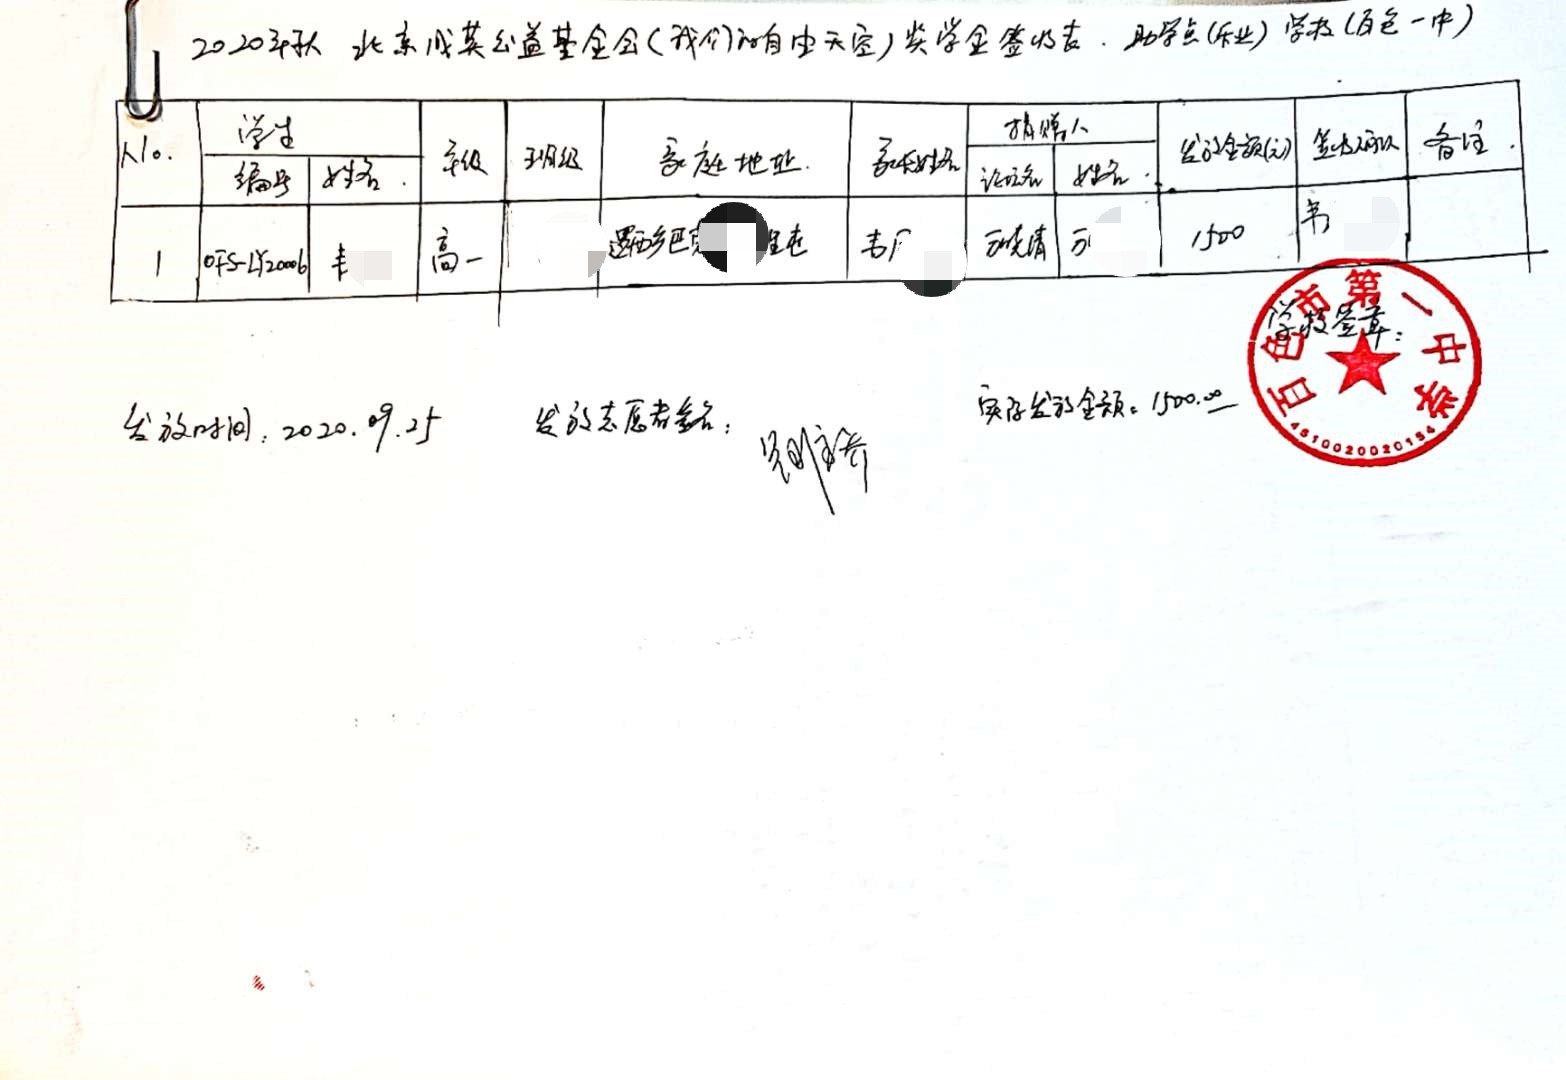 2020年秋 北京成美公益基金会(我们的自由天空)奖学金签收表. 助学点(乐业) 学校(百色一中)
No. 学生 年级 班级 家庭地址. 家长姓名 捐赠人 发放金额(元) 签收确认 备注.
编号 姓名. 论坛名 姓名.
1 OFS-LY20006 高一 逻西乡巴 韦 1500 韦
学校签章:
百色市第一中学
4510020020154
发放时间: 2020.09.25 发放志愿者签名: 实际发放金额: 1500.00